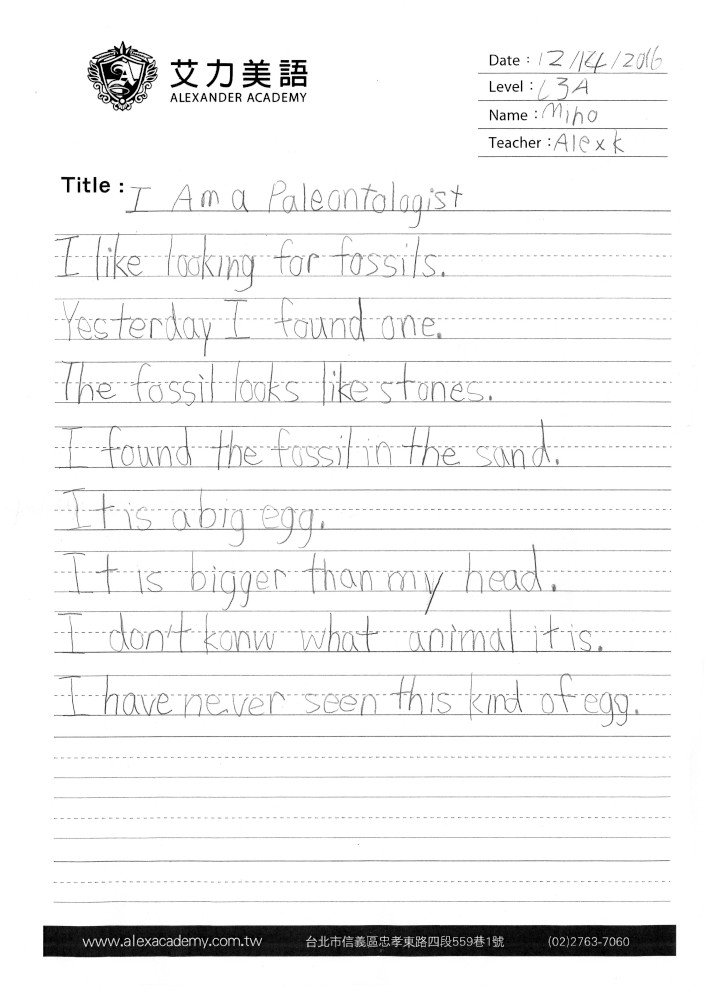 艾力美語
ALEXANDER ACADEMY
Date : 12/14/2016
Level : L3A
Name : Miho
Teacher : Alex k
Title : I Am a Paleontologist
I like looking for fossils.
Yesterday I found one.
The fossil looks like stones.
I found the fossil in the sand.
It is a big egg.
It is bigger than my head.
I don't konw what animal it is.
I have never seen this kind of egg.
www.alexacademy.com.tw 台北市信義區忠孝東路四段559巷1號 (02)2763-7060